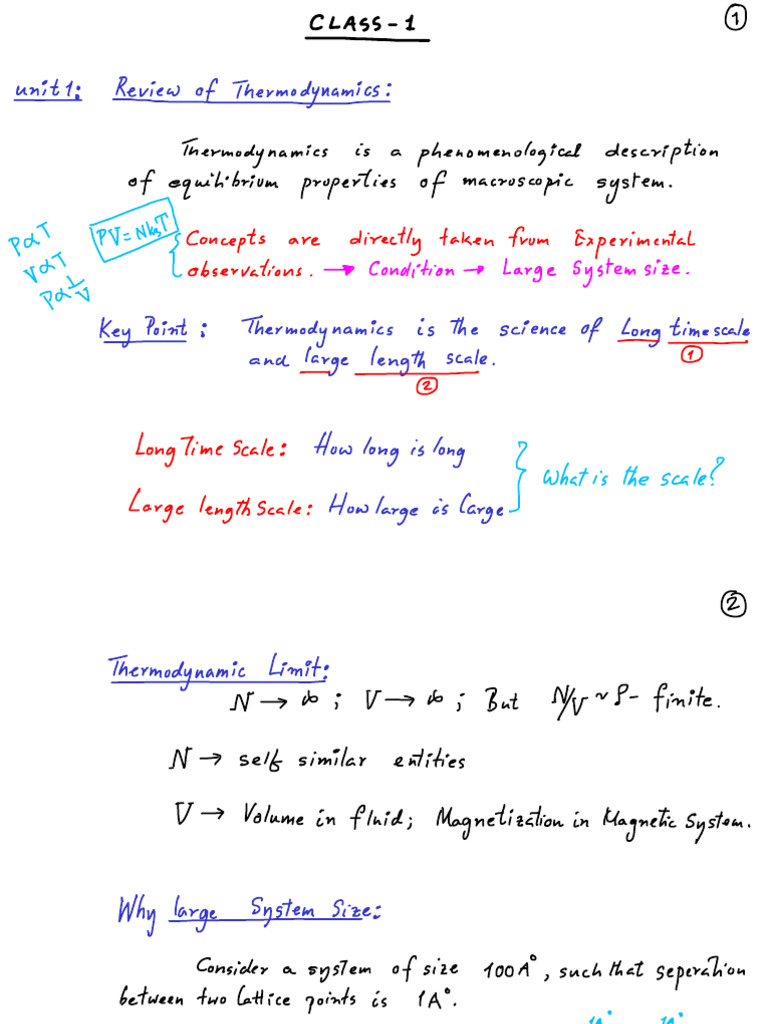 CLASS-1
①
unit1: Review of Thermodynamics:
Thermodynamics is a phenomenological description
of equilibrium properties of macroscopic system.
P∝T
V∝T
P∝1/V
PV=NkBT
Concepts are directly taken from Experimental
observations. → Condition → Large System size.
Key Point: Thermodynamics is the science of Long timescale
①
and large length scale.
②
Long Time Scale: How long is long
What is the scale?
Large length Scale: How large is Large
②
Thermodynamic Limit:
N → ∞; V → ∞; But N/V ~ ρ- finite.
N → self similar entities
V → Volume in fluid; Magnetization in Magnetic System.
Why large System Size:
Consider a system of size 100A°, such that seperation
between two lattice points is 1A°.